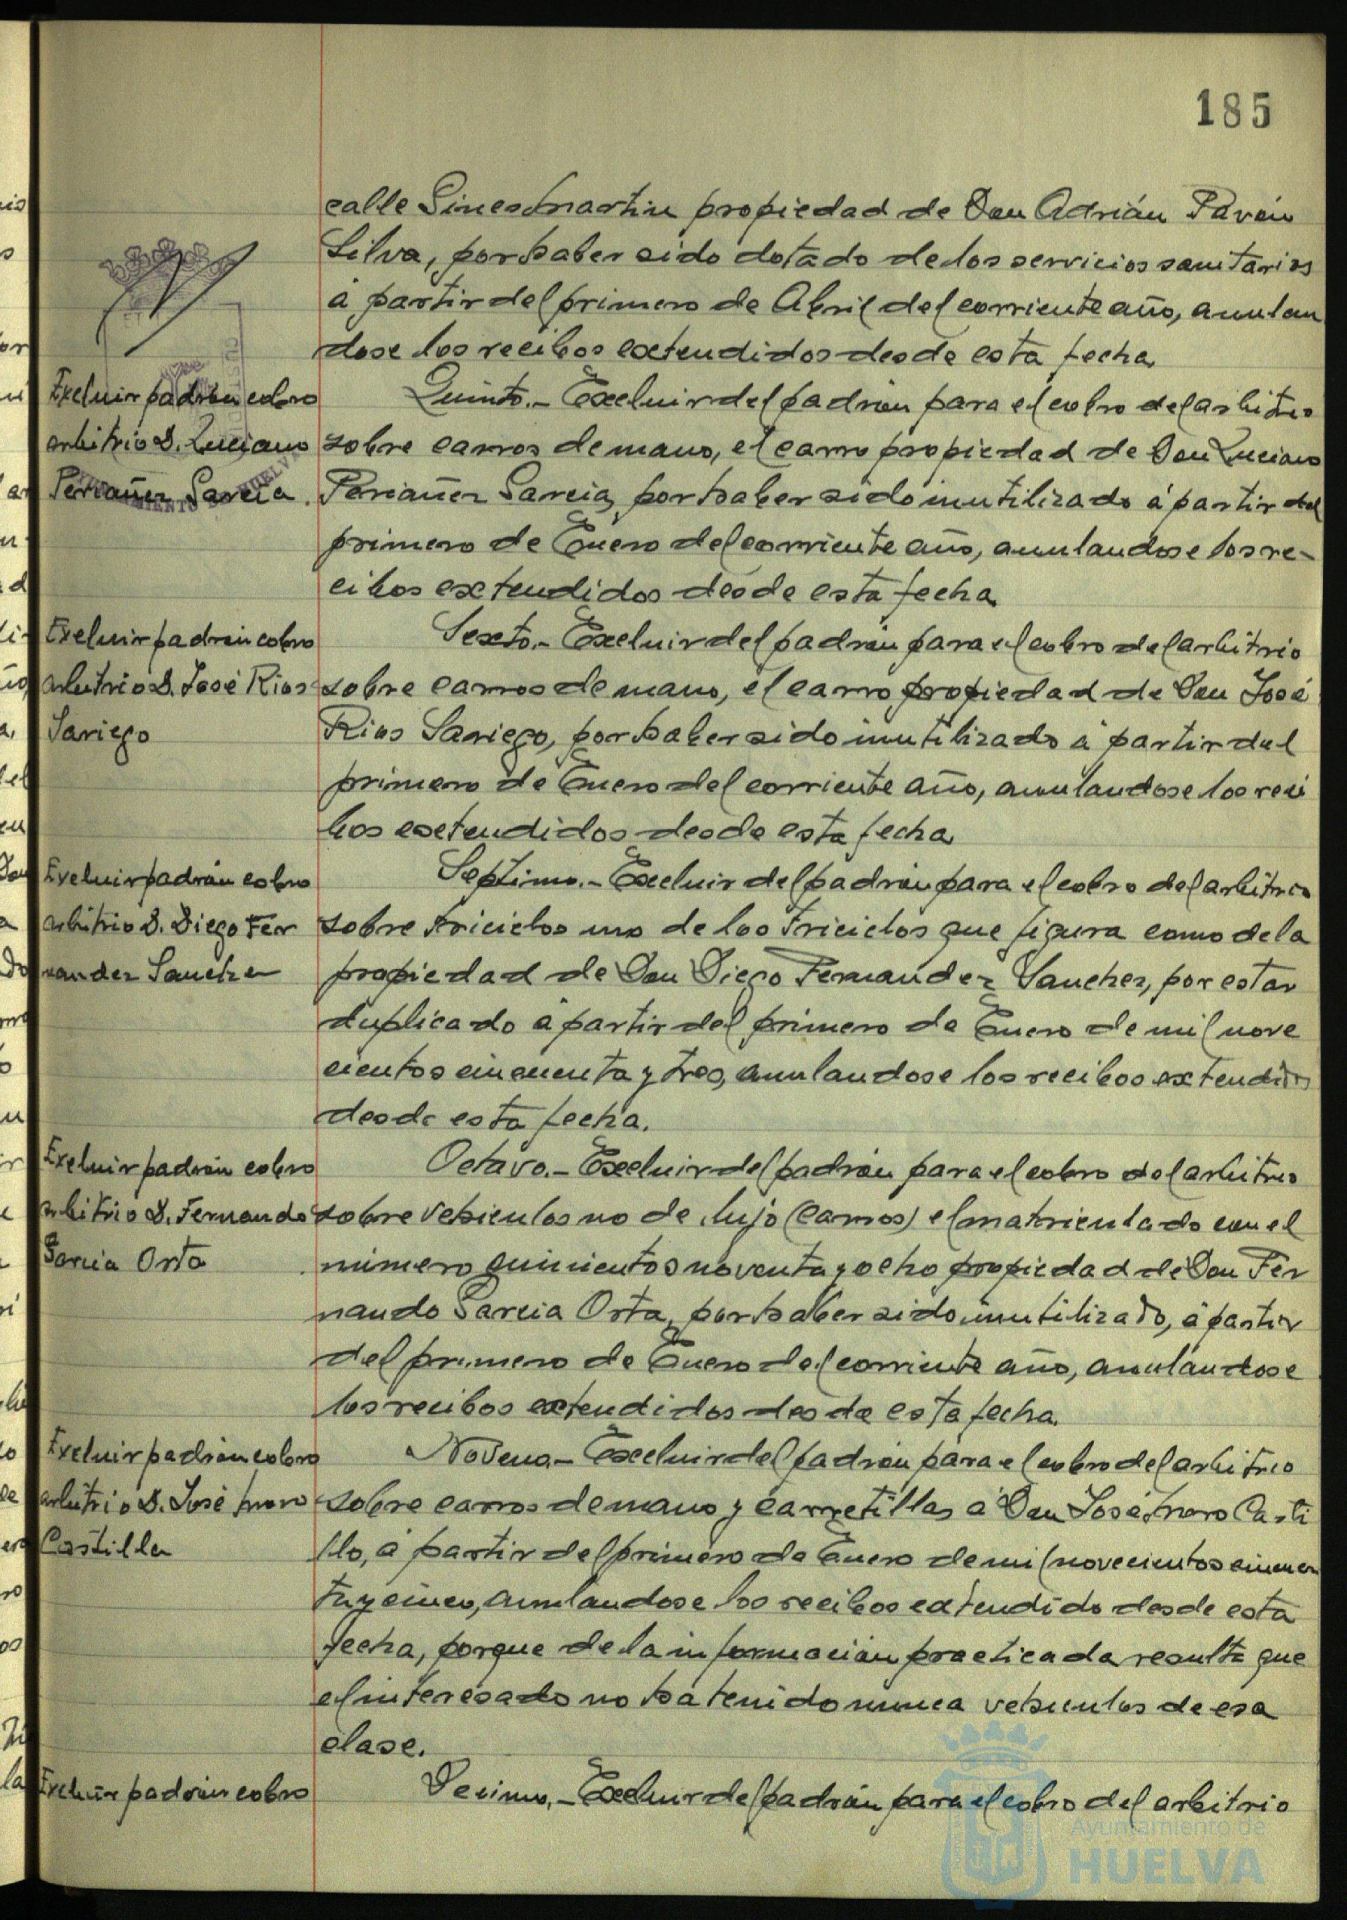 185
calle Gines Martin propiedad de Don Adrián Pavón
Silva, por haber sido dotado de los servicios sanitarios
á partir del primero de Abril del corriente año, anulan
dose los recibos extendidos desde esta fecha
Excluir padrón cobro
arbitrio D. Luciano
Periañez Garcia.
Quinto.- Excluir del padrón para el cobro del arbitrio
sobre carros de mano, el carro propiedad de Don Luciano
Periañez Garcia, por haber sido inutilizado á partir del
primero de Enero del corriente año, anulandose los re-
cibos extendidos desde esta fecha
Excluir padrón cobro
arbitrio D. José Rios
Sariego
Sexto.- Excluir del padrón para el cobro del arbitrio
sobre carros de mano, el carro propiedad de Don José
Rios Sariego, por haber sido inutilizado á partir del
primero de Enero del corriente año, anulandose los reci
bos extendidos desde esta fecha
Excluir padrón cobro
arbitrio D. Diego Fer
nandez Sanchez
Septimo.- Excluir del padrón para el cobro del arbitrio
sobre triciclos uno de los triciclos que figura como de la
propiedad de Don Diego Fernandez Sanchez, por estar
duplicado á partir del primero de Enero de mil nove
cientos cincuenta y tres, anulandose los recibos extendidos
desde esta fecha.
Excluir padrón cobro
arbitrio D. Fernando
Garcia Orta
Octavo.- Excluir del padrón para el cobro del arbitrio
sobre vehiculos no de lujo (carros) el matriculado con el
número quinientos noventa y ocho propiedad de Don Fer
nando Garcia Orta, por haber sido inutilizado, á partir
del primero de Enero del corriente año, anulándose
los recibos extendidos desde esta fecha.
Excluir padrón cobro
arbitrio D. José Moro
Castilla
Noveno.- Excluir del padrón para el cobro del arbitrio
sobre carros de mano y carretillas á Don José Moro Casti
llo, á partir del primero de Enero de mil novecientos cincuen
ta y cinco, anulandose los recibos extendido desde esta
fecha, porque de la información practicada resulta que
el interesado no há tenido nunca vehiculos de esa
clase.
Excluir padrón cobro
Decimo.- Excluir del padrón para el cobro del arbitrio
Ayuntamiento de
HUELVA